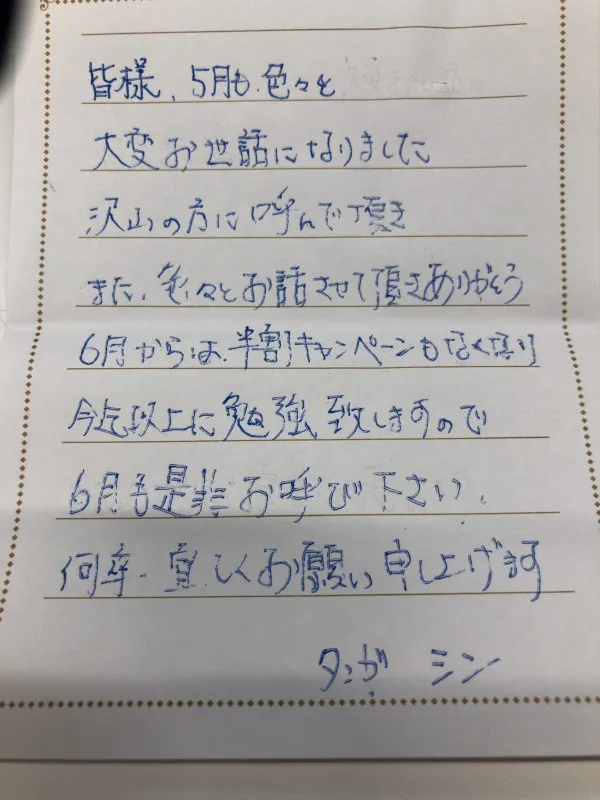 皆様、5月も色々と
大変お世話になりました
沢山の方に呼んで頂き
また、色々とお話させて頂きありがとう
6月からは、半割キャンペーンもなくなり
今迄以上に勉強致しますので
6月も是非お呼び下さい、
何卒、宜しくお願い申し上げます
シン